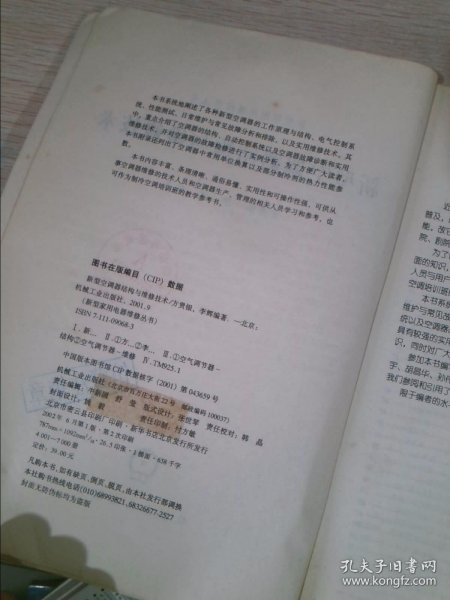 本书系统地阐述了各种新型空调器的工作原理与结构、电气控制系
统、性能测试、日常维护与常见故障分析和排除，以及实用维修技术。其
中，重点介绍了空调器的结构、自动控制系统以及空调器故障诊断和实用
维修技术，并对空调器的故障检修进行了实例分析。为了方便广大读者，
本书附录还列出了空调器中常用单位换算以及部分制冷剂的热力性能参
数。
本书内容丰富、条理清晰、通俗易懂、实用性和可操作性强，可供从
事空调器维修的技术人员和空调器生产、管理的相关人员学习和参考，也
可作为制冷空调培训班的教学参考书。
图书在版编目（CIP）数据
新型空调器结构与维修技术/方贵银，李辉编著．—北京：
机械工业出版社，2001.9
（新型家用电器维修丛书）
ISBN 7-111-09068-3
Ⅰ．新… Ⅱ．①方…②李… Ⅲ．①空气调节器－
结构②空气调节器－维修 Ⅳ．TM925.1
中国版本图书馆CIP数据核字（2001）第043659号
机械工业出版社（北京市百万庄大街22号 邮政编码100037）
责任编辑： 版式设计：张世琴 责任校对：韩 晶
封面设计：姚 毅 责任印制：付方敏
北京市密云县印刷厂印刷·新华书店北京发行所发行
2002年6月第1版·第2次印刷
787mm×1092mm 1/16·26.5印张·1插页·658千字
4 001-7 000册
定价：39.00元
凡购本书，如有缺页、倒页、脱页，由本社发行部调换
本社购书热线电话（010）68993821、68326677-2527
封面无防伪标均为盗版
近
普及，
能。故
院、剧院
为了
面的知识，
人员与用户
空调培训班
本书系
维护与常见故
统以及空调器
具有较强的实用
间，同时对广大
参加本书编
宇、胡昌华、孙
我们参阅和引用了
限于编者的水
孔夫子旧书网
www.kongfz.com